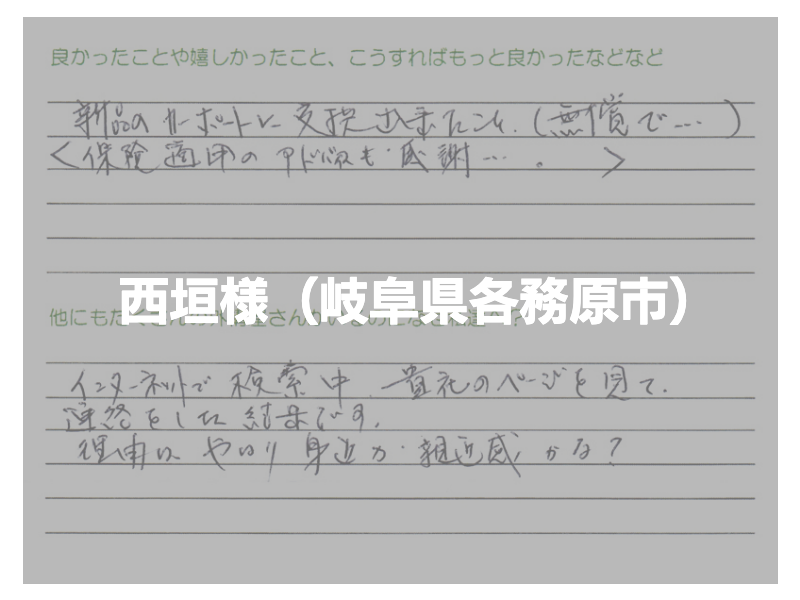 良かったことや嬉しかったこと、こうすればもっと良かったなどなど
新品のカーポートに交換出来たこと.(無償で…)
<保険適用のアドバイスも感謝…。>
西垣様（岐阜県各務原市）
他にもた
さんが
インターネットで検索中、貴社のページを見て、
連絡をした結果です。
理由は、やはり身近か・親近感かな？